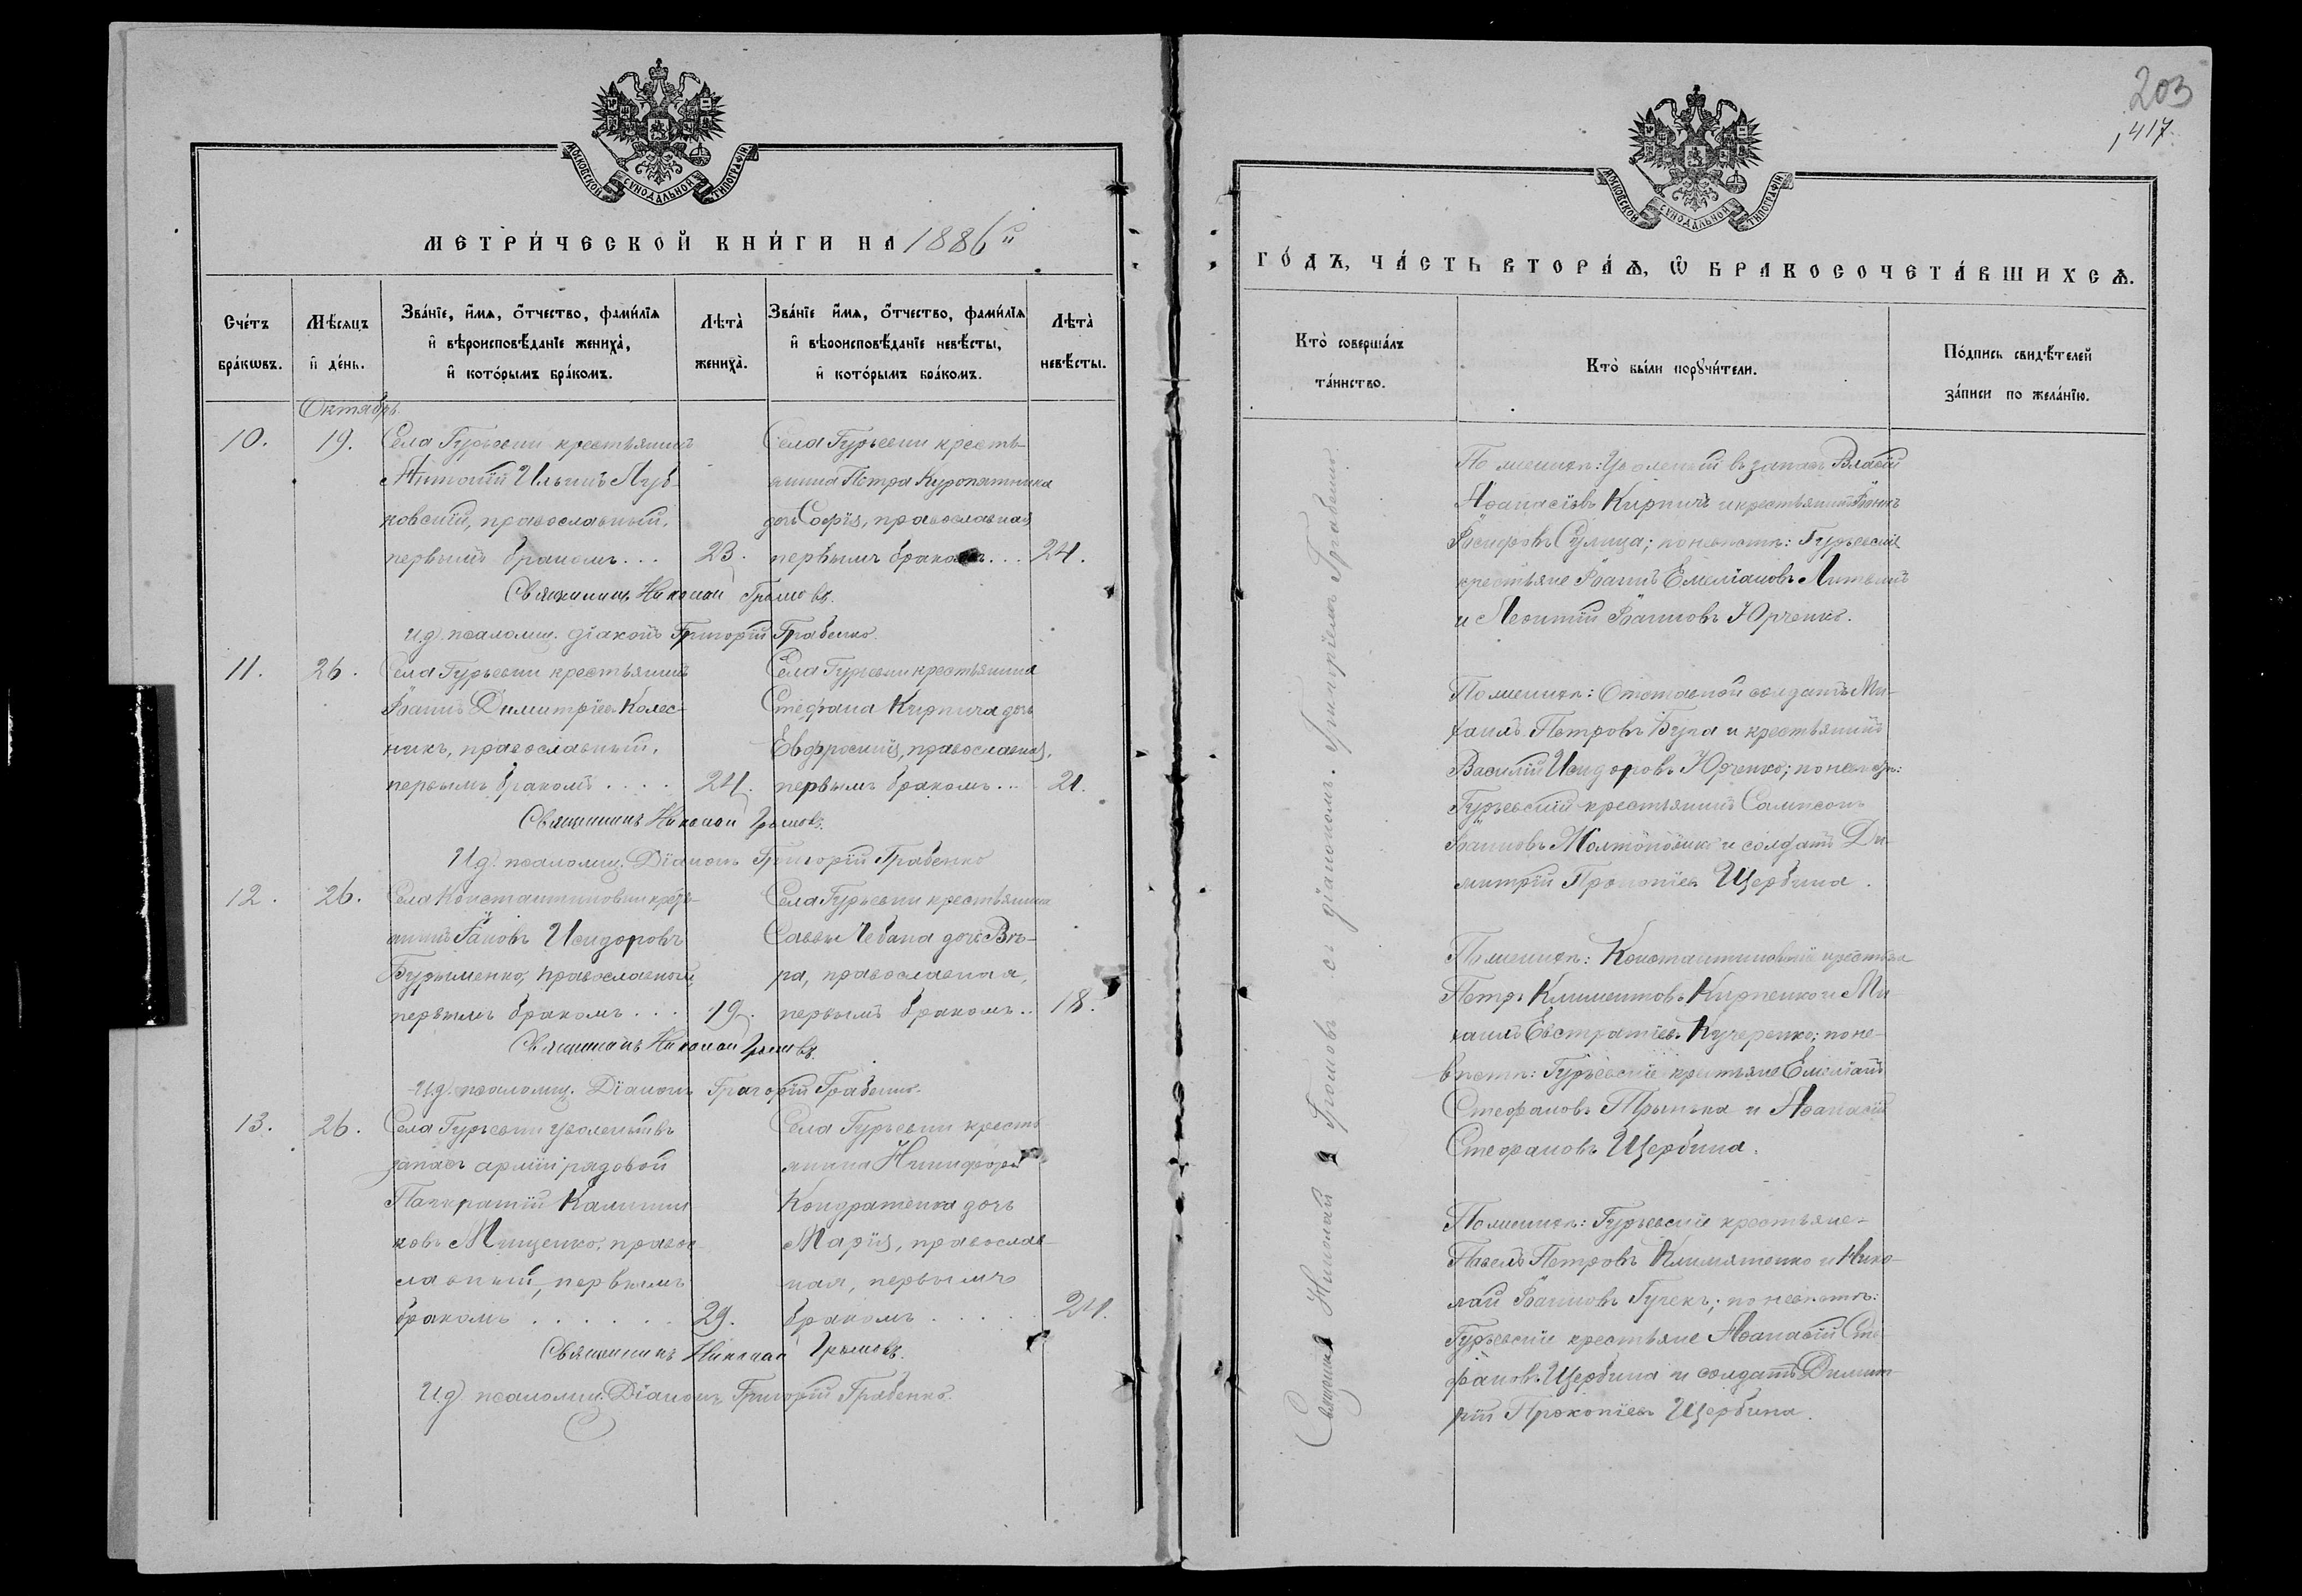 МОСКОВСКОЙ СѴНОДАЛЬНОЙ ТИПОГРАФІИ
МЕТРИ́ЧЕСКОЙ КНИ́ГИ НА 1886й
Счéтъ
брáкѡвъ.
Мѣ́сяцъ
и҆ дéнь.
Звáнїе, и҆́мѧ, ѻ҆́тчество, фами́лїѧ
и҆ вѣроисповѣ́данїе женихà,
и҆ кото́рымъ брáкомъ.
Лѣтà
женихà.
Звáнїе и҆́мѧ, ѻ҆́тчество, фами́лїѧ
и҆ вѣроисповѣ́данїе невѣ́сты,
и҆ кото́рымъ брáкомъ.
Лѣтà
невѣ́сты.
Октябрь
10.
19.
Села Гурьевки крестьянинъ
Антоній Ильинъ Луб-
ковскій, православный,
первымъ бракомъ...
23.
Села Гурьевки кресть-
янина Петра Куропятника
дочь Софія, православная
первымъ бракомъ...
24.
Священникъ Николай Громовъ.
И.д. псаломщ. діаконъ Григорій Грабенко.
11.
26.
Села Гурьевки крестьянинъ
Іоаннъ Димитріевъ Колес-
никъ, православный,
первымъ бракомъ....
24.
Села Гурьевки крестьянина
Стефана Кирпича дочь
Евфросинія, православная,
первымъ бракомъ...
21.
Священникъ Николай Громовъ.
И.д. псаломщ. Діаконъ Григорій Грабенко
12.
26.
Села Константиновки кресть-
янинъ Іаковъ Исидоровъ
Бурыменко, православный,
первымъ бракомъ...
19.
Села Гурьевки крестьянина
Саввы Чебана дочь Вѣ-
ра, православная,
первымъ бракомъ..
18.
Священникъ Николай Громовъ.
И.д. псаломщ. Діаконъ Григорій Грабенко.
13.
26.
Села Гурьевки уволенный въ
запасъ арміи рядовой
Панкратій Калинни-
ковъ Мищенко, правос-
лавный, первымъ
бракомъ......
29.
Села Гурьевки кресть
янина Никифора
Кондратенка дочь
Марія, православ-
ная, первымъ
бракомъ.....
24.
Священникъ Николай Громовъ.
И.д. псаломщ. Діаконъ Григорій Грабенко.
203
417.
МОСКОВСКОЙ СѴНОДАЛЬНОЙ ТИПОГРАФІИ
ГО́ДЪ, ЧА́СТЬ ВТОРА́Ѧ, Ѽ БРАКОСОЧЕТА́ВШИХСѦ.
Ктò совершáлъ
тáинство.
Ктò бы́ли порꙋчи́тели.
По́дпись свидѣ́телей
зáписи по желáнїю.
Священникъ Николай Громовъ съ діакономъ Григоріемъ Грабенко.
По женихѣ: Уволеный въ запасъ Власій
Аѳанасіевъ Кирпичъ и крестьянинъ
Сулица; по невѣстѣ: Гурьевскіе
крестьяне Іоаннъ Емеліановъ
и Леонтій Іоанновъ Юрченко.
По женихѣ: Отставной солдатъ Ми-
хаилъ Петровъ Буга и крестьянинъ
Василій Исидоровъ Юрченко; по невѣстѣ:
Гурьевскій крестьянинъ Сампсонъ
Іоанновъ и солдатъ Ди-
митрій Прокопіевъ Щербина.
По женихѣ: Константиновскіе крестьяне
Петръ Климентовъ Кирпенко и Ми-
хаилъ Евстратіевъ Кучеренко; по не-
вѣстѣ: Гурьевскіе крестьяне Емеліанъ
Стефановъ Трынька и Аѳанасій
Стефановъ Щербина.
По женихѣ: Гурьевскіе крестьяне-
Павелъ Петровъ Климатенко и Нико-
лай Іоанновъ Гучекъ; по невѣстѣ:
Гурьевскіе крестьяне Аѳанасій Сте-
фановъ Щербина и солдатъ Димит-
рій Прокопіевъ Щербина.